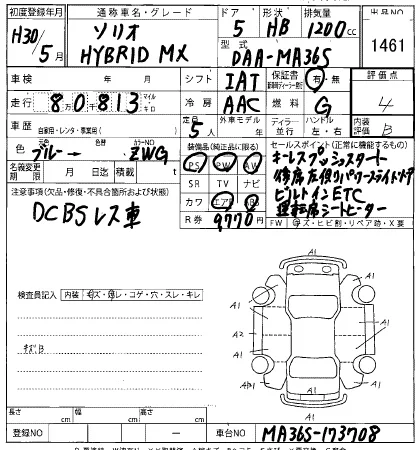 初度登録年月 通称車名・グレード ドア 形状 排気量 出品NO
H30/5月 ソリオ HYBRID MX 5 HB 1200cc 1461
型式 DAA-MA36S
車検 年 月 シフト IAT 保証書 有・無 評価点
走行 80813 マイル キロ 冷房 AAC 燃料 G 4
車歴 自家用・レンタ・事業用( ) 定員 5人 外車モデル ディーラー 並行 ハンドル 左・右 内装評価 B
色 ブルー 色替 カラーNO ZWG 装備品(純正品に限る) セールスポイント(正常に機能するもの)
名義変更期限 月 日 積載 t PS PW AW キーレスプッシュスタート
注意事項(欠品・修復・不具合箇所および状態) SR TV ナビ
DCBSレス車 カワ エアB ビルトインETC
R券 9770円 運転席シートヒーター
FW
検査員記入 内装 キズ・汚レ・コゲ・穴・スレ・キレ
A1
A1 A1
A2 A1
A1 A1
A1
キズB
長さ cm 幅 cm 高さ cm
登録NO 車台NO MA36S-173708